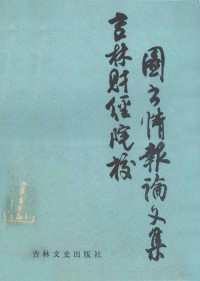 吉林财经院校
图书情报论文集
吉林文史出版社